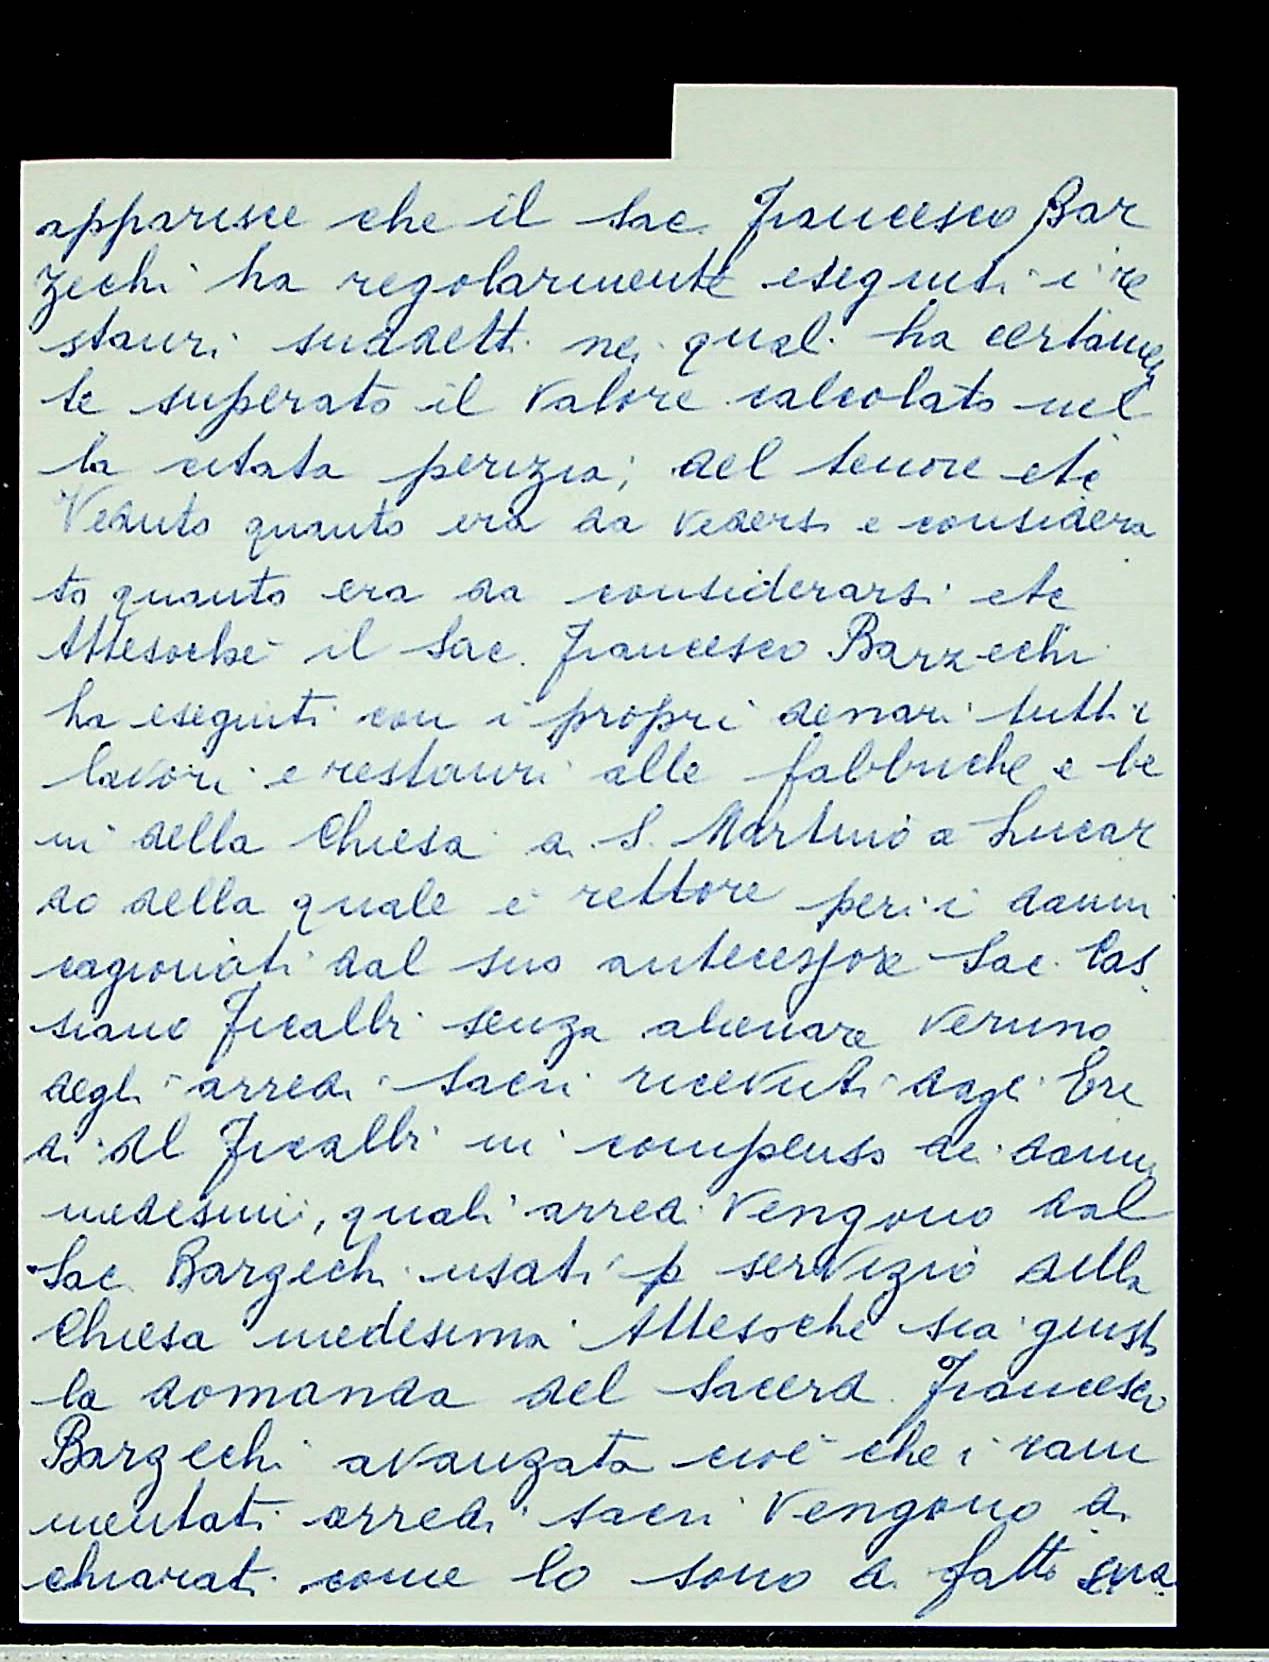 apparisce che il Sac. Francesco Bar
zechi ha regolarmente eseguiti i re
stauri suddetti nei quali ha certamen
te superato il valore calcolato nel
la citata perizia; del tenore etc
Veduto quanto era da vedersi e considera
to quanto era da considerarsi etc
Attesochè il Sac. Francesco Barzechi
ha eseguiti con i propri denari tutti i
lavori e restauri alle fabbriche e be
ni della Chiesa a S. Martino a Lucar
do della quale è rettore per i danni
cagionati dal suo antecessore Sac. Cas
siano Ficalbi senza alienare veruno
degli arredi sacri ricevuti dagli Ere
di del Ficalbi in compenso dei danni
medesimi, quali arredi vengono dal
Sac. Barzechi usati p servizio della
Chiesa medesima Attesochè sia giusta
la domanda del Sacerd. Francesco
Barzechi avanzata cioè che i ram
mentati arredi sacri vengono di
chiarati come lo sono di fatto sua